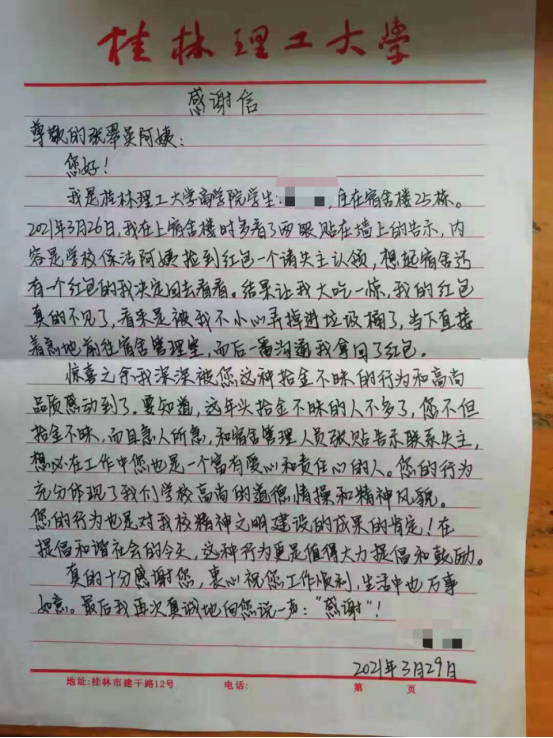 桂林理工大学
感谢信
尊敬的张翠英阿姨:
您好!
我是桂林理工大学商学院学生: ,住在宿舍楼25栋。
2021年3月26日,我在上宿舍楼时多看了两眼贴在墙上的告示,内
容是学校保洁阿姨捡到红包一个请失主认领,想起宿舍还
有一个红包的我决定回去看看。结果让我大吃一惊,我的红包
真的不见了,看来是被我不小心弄掉进垃圾桶了,当下直接
着急地前往宿舍管理室,而后一番沟通我拿回了红包。
惊喜之余我深深被您这种拾金不昧的行为和高尚
品质感动到了。要知道,这年头拾金不昧的人不多了,您不但
拾金不昧,而且急人所急,和宿舍管理人员张贴告示联系失主,
想必在工作中您也是一个富有爱心和责任心的人。您的行为
充分体现了我们学校高尚的道德情操和精神风貌。
您的行为也是对我校精神文明建设的成果的肯定!在
提倡和谐社会的今天,这种行为更是值得大力提倡和鼓励。
真的十分感谢您,衷心祝您工作顺利,生活中也万事
如意。最后我再次真诚地向您说一声:“感谢”!
2021年3月29日
地址:桂林市建干路12号 电话: 第 页